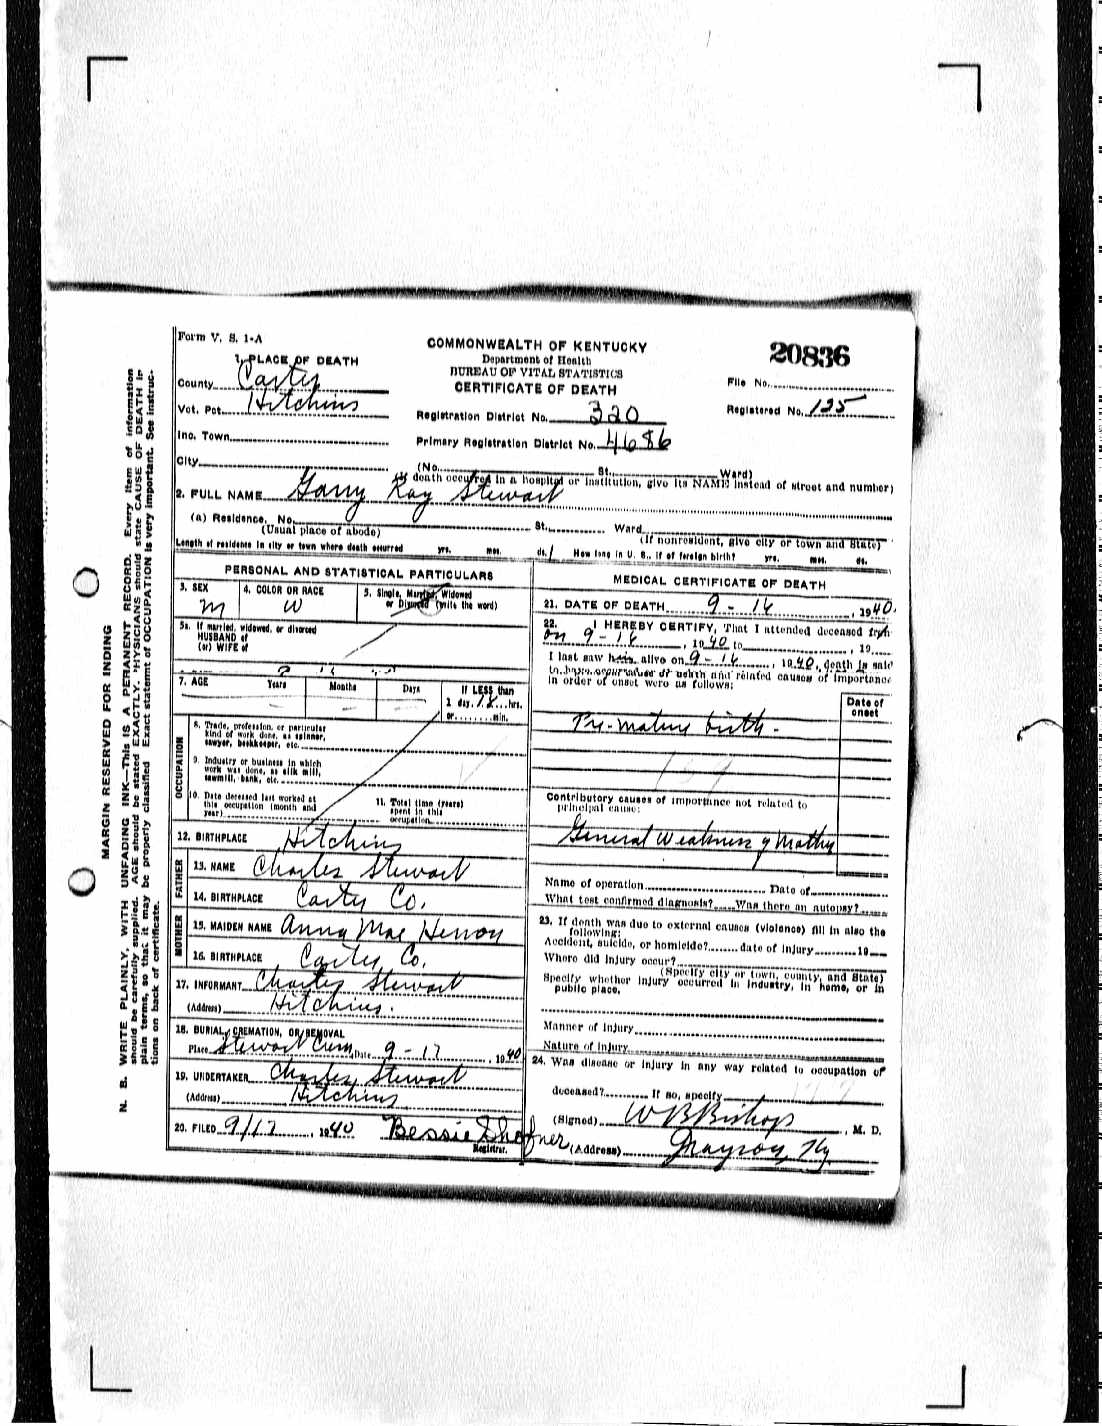 Form V. S. 1-A
COMMONWEALTH OF KENTUCKY
Department of Health
BUREAU OF VITAL STATISTICS
CERTIFICATE OF DEATH
20836
1. PLACE OF DEATH
County Carter
Vot. Pct. Hitchins
Inc. Town
City
Registration District No. 320
Primary Registration District No. 4686
File No.
Registered No. 125
(No. St. Ward)
(If death occurred in a hospital or institution, give its NAME instead of street and number)
2. FULL NAME Garry Ray Stewart
(a) Residence. No. St. Ward
(Usual place of abode)
(If nonresident, give city or town and State)
Length of residence in city or town where death occurred yrs. mos. ds. How long in U. S., if of foreign birth? yrs. mos. ds.
PERSONAL AND STATISTICAL PARTICULARS
3. SEX
M
4. COLOR OR RACE
W
5. Single, Married, Widowed
or Divorced (write the word)
5a. If married, widowed, or divorced
HUSBAND of
(or) WIFE of
7. AGE Years Months Days If LESS than
1 day, 18 hrs.
or min.
OCCUPATION
8. Trade, profession, or particular
kind of work done, as spinner,
sawyer, bookkeeper, etc.
9. Industry or business in which
work was done, as silk mill,
sawmill, bank, etc.
10. Date deceased last worked at
this occupation (month and
year)
11. Total time (years)
spent in this
occupation
12. BIRTHPLACE Hitchins
FATHER
13. NAME Charles Stewart
14. BIRTHPLACE Carter Co.
MOTHER
15. MAIDEN NAME Anna Mae Henson
16. BIRTHPLACE Carter Co.
17. INFORMANT Charles Stewart
(Address) Hitchins.
18. BURIAL, CREMATION, OR REMOVAL
Place Stewart Cem. Date 9-17, 1940
19. UNDERTAKER Charles Stewart
(Address) Hitchins
20. FILED 9/17, 1940 Bessie Shofner
Registrar.
MEDICAL CERTIFICATE OF DEATH
21. DATE OF DEATH 9-16, 1940.
22. I HEREBY CERTIFY, That I attended deceased from
on 9-16, 1940 to , 19
I last saw him alive on 9-16, 1940, death is said
in order of onset were as follows:
Date of
onset
Pre-mature birth.
159
Contributory causes of importance not related to
principal cause:
General Weakness of Mother
Name of operation Date of
What test confirmed diagnosis? Was there an autopsy?
23. If death was due to external causes (violence) fill in also the
following:
Accident, suicide, or homicide? date of injury 19
Where did injury occur?
(Specify city or town, county, and State)
Specify whether injury occurred in industry, in home, or in
public place.
Manner of injury
Nature of injury
24. Was disease or injury in any way related to occupation of
deceased? If so, specify
(Signed) W B Bishop, M. D.
(Address) Grayson, Ky
MARGIN RESERVED FOR BINDING
N. B. WRITE PLAINLY, WITH UNFADING INK—THIS IS A PERMANENT RECORD. Every item of information
should be carefully supplied. AGE should be stated EXACTLY. PHYSICIANS should state CAUSE OF DEATH in
plain terms, so that it may be properly classified. Exact statement of OCCUPATION is very important. See instruc-
tions on back of certificate.